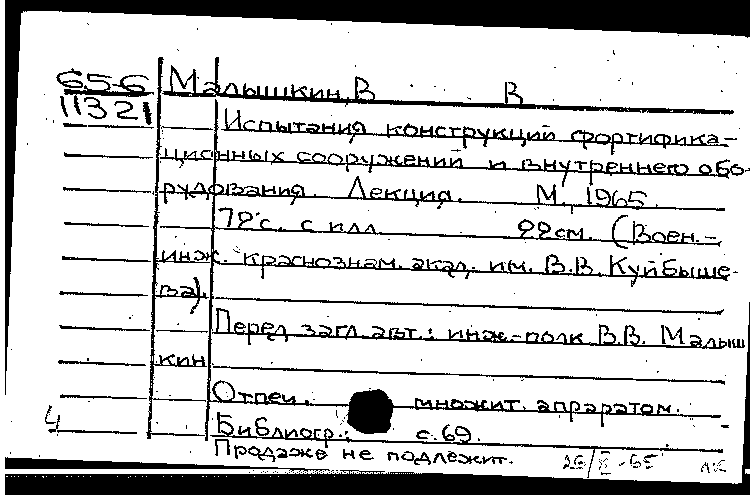 65-6 Малышкин, В В
11321
Испытания конструкций фортифика-
ционных сооружений и внутреннего обо-
рудования. Лекция. М., 1965.
72 с. с илл. 22см. (Воен.-
инж. краснознам. акад. им. В.В. Куйбыше-
ва).
Перед загл. авт.: инж.-полк В.В. Малыш
кин
Отпеч. множит. аппаратом.
4 Библиогр.: с. 69.
Продаже не подлежит. 26/X-65